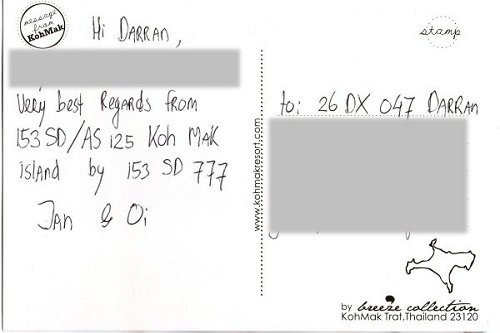 message
from
KohMak
Hi DARRAN,
Very best Regards from
153 SD/AS 125 Koh MAK
island by 153 SD 777
JAN & Oi
stamp
to: 26 DX 047 DARRAN
www.kohmakresort.com
by breeze collection
KohMak Trat,Thailand 23120